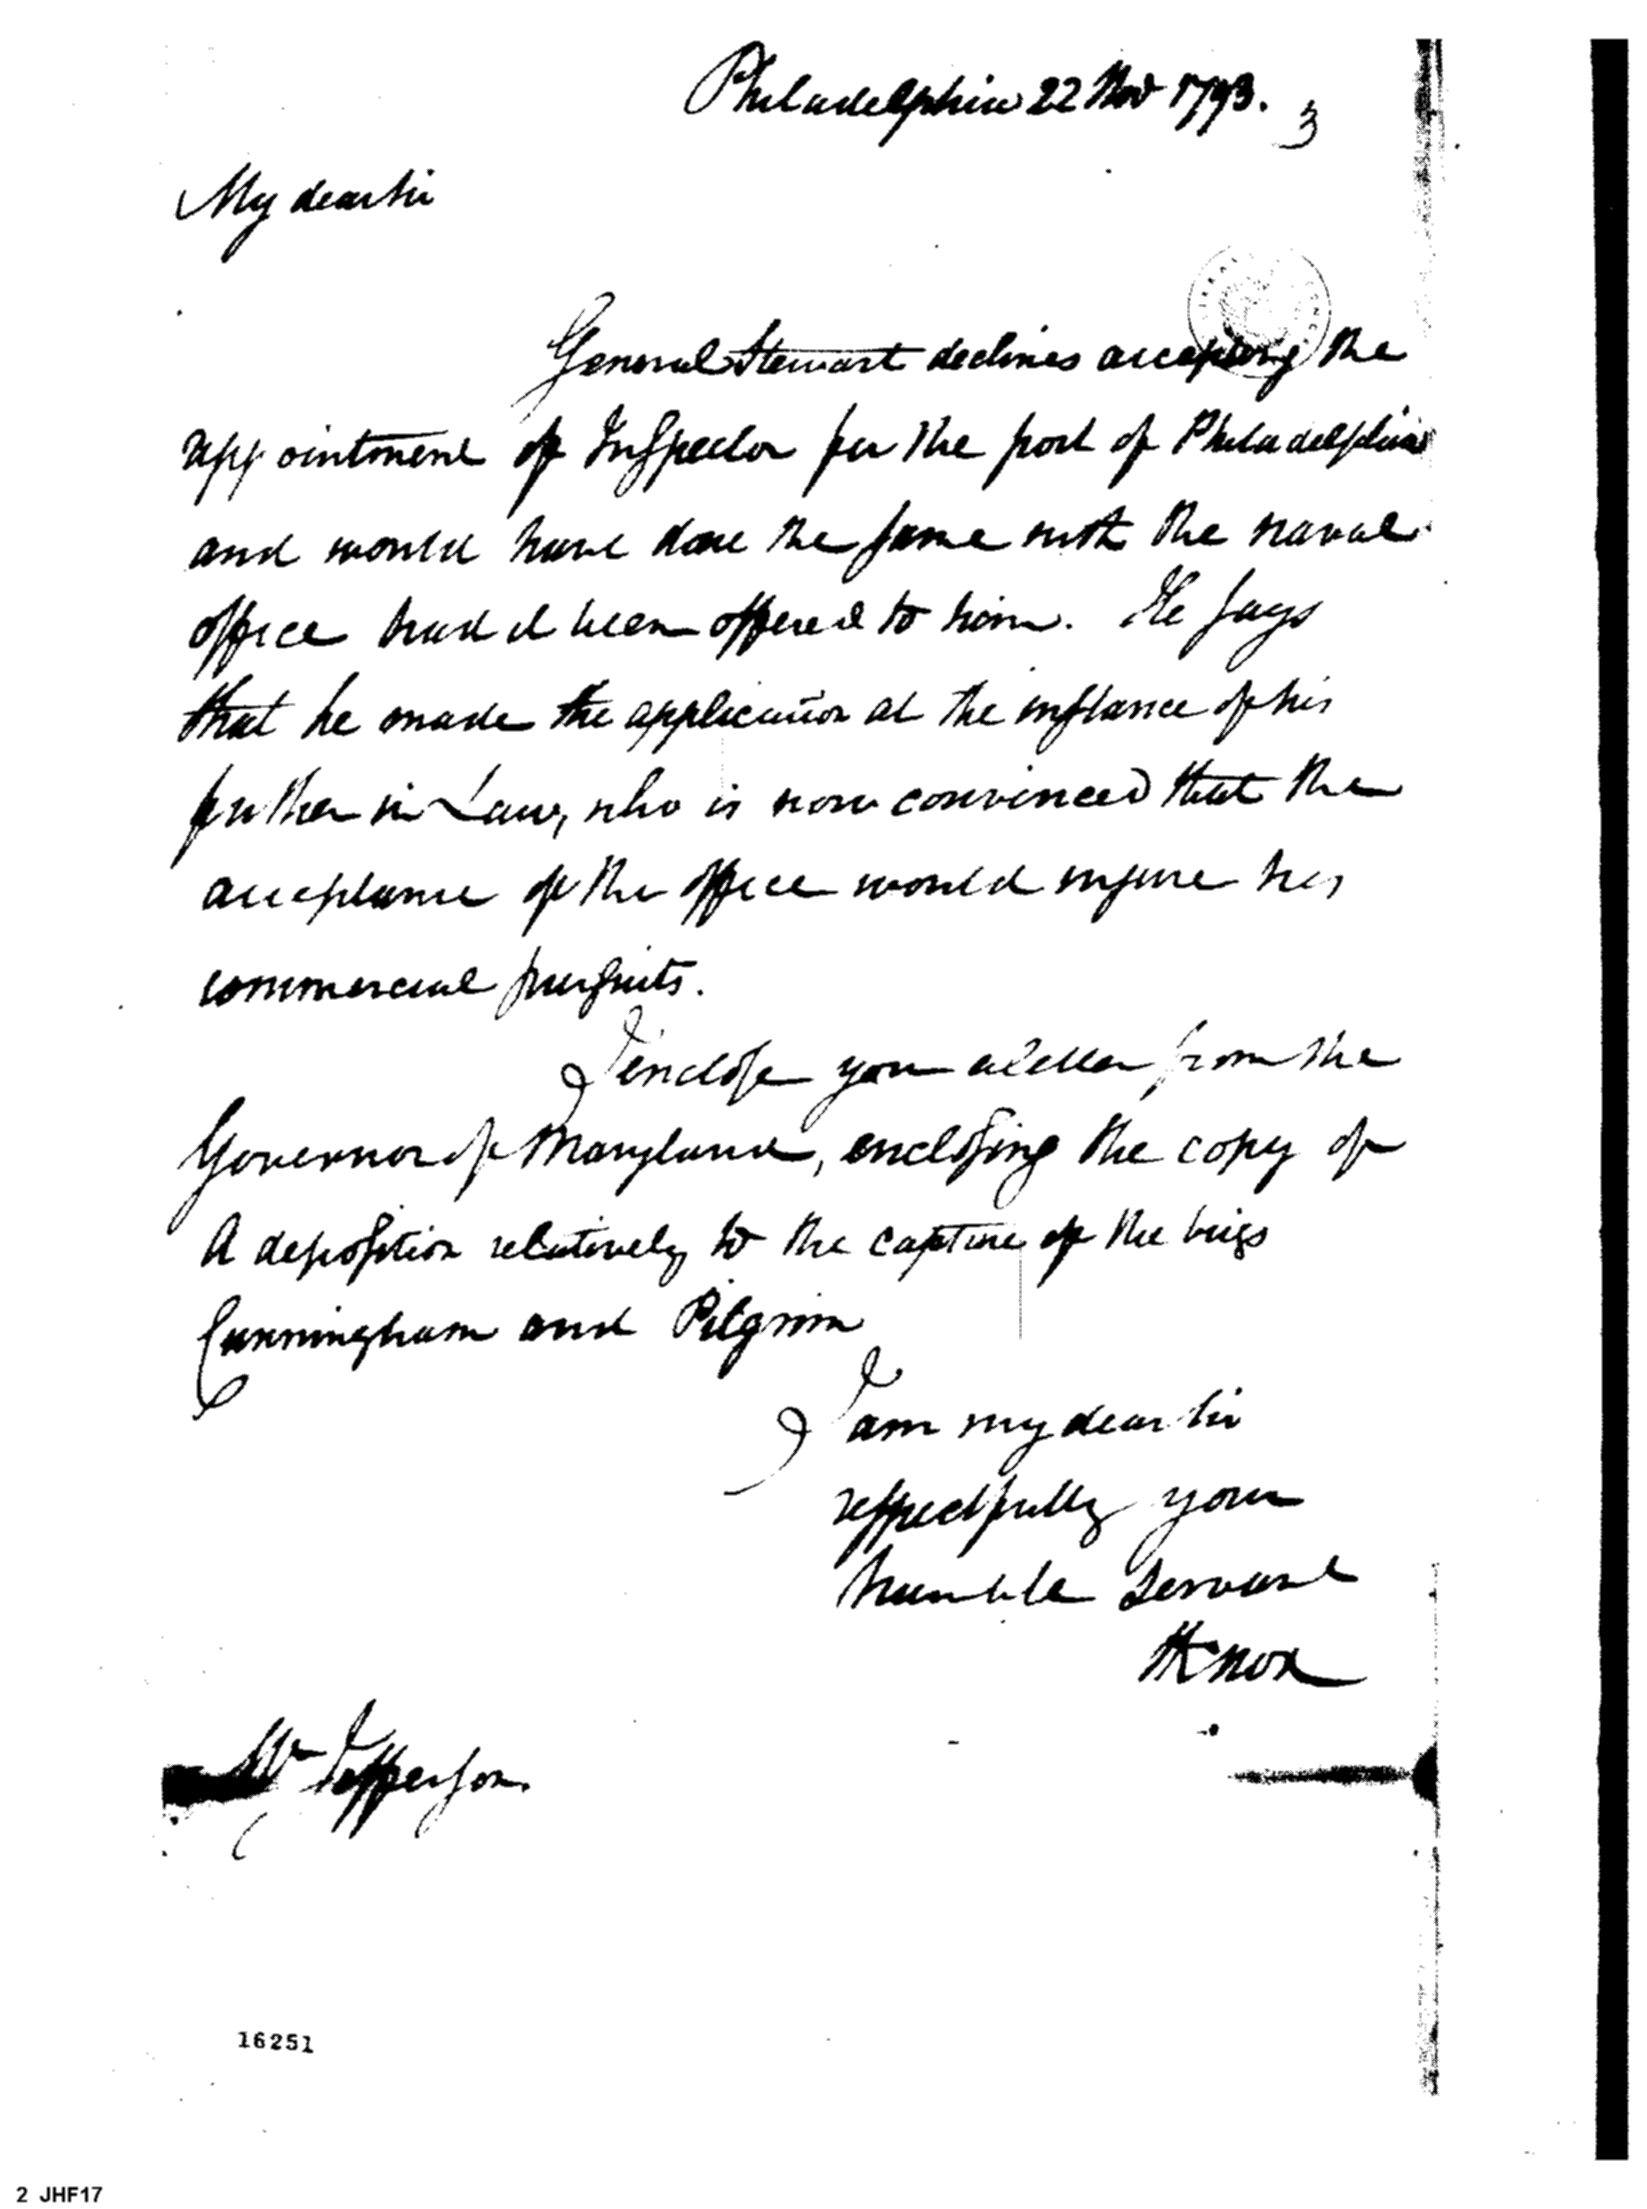 Philadelphia 22 Nov 1793.
3
My dear sir
General Stewart declines accepting the
appointment of Inspector for the port of Philadelphia
and would have done the same with the naval
office had it been offered to him. He says
that he made the application at the instance of his
father in Law, who is now convinced that the
acceptance of the office would injure his
commercial pursuits.
I enclose you a letter from the
Governor of Maryland, enclosing the copy of
A deposition relatively to the capture of the brigs
Cunningham and Pilgrim
I am my dear sir
respectfully your
humble servant
HKnox
Mr Jefferson
16251
2 JHF17